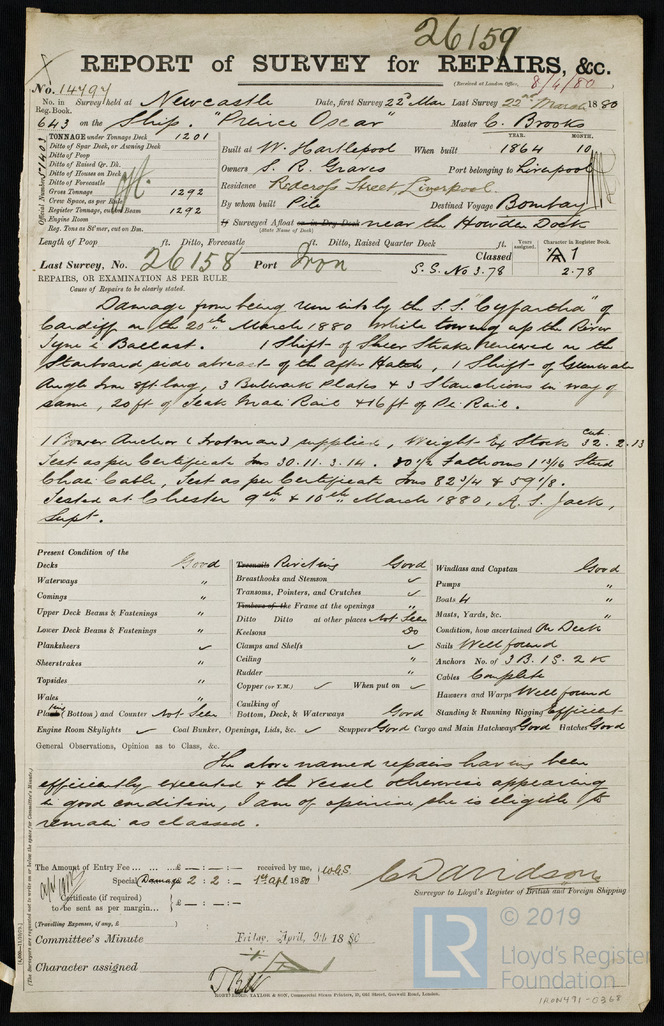 26159
REPORT of SURVEY for REPAIRS, &c.
(Received at London Office, 8/4/80
No. 14797
No. in Reg. Book. Survey held at Newcastle Date, first Survey 22nd Mar Last Survey 22nd March 1880
643 on the Ship. "Prince Oscar" Master C. Brooks
TONNAGE under Tonnage Deck 1201
Ditto of Spar Deck, or Awning Deck
Ditto of Poop
Ditto of Raised Qr. Dk.
Ditto of Houses on Deck
Ditto of Forecastle
Gross Tonnage 1292
Crew Space, as per Rule
Register Tonnage, cut on Beam 1292
Engine Room
Reg. Tons as St'mer, cut on Bm.
Official Number 51402
YEAR. MONTH.
Built at W. Hartlepool When built 1864 10
Owners S. R. Graves Port belonging to Liverpool
Residence Redcross Street, Liverpool.
By whom built Pile Destined Voyage Bombay
If Surveyed Afloat or in Dry Dock near the Howden Dock
(State Name of Dock)
Length of Poop ft. Ditto, Forecastle ft. Ditto, Raised Quarter Deck ft.
Last Survey, No. 26158 Port Iron Classed Years assigned. Character in Register Book.
A 1
S.S. No 3.78 2.78
REPAIRS, OR EXAMINATION AS PER RULE
Cause of Repairs to be clearly stated.
Damage from being run into by the S.S. "Cyfartha" of
Cardiff on the 20th March 1880 while towing up the River
Tyne in Ballast. 1 Shift of Sheer Strake renewed on the
Starboard side abreast of the after Hatch, 1 Shift of Gunwale
Angle Iron 8ft long, 3 Bulwark Plates & 3 Stanchions in way of
same, 20ft of Teak Main Rail & 16ft of Rail.
1 Bower Anchor (Trotman) supplied, Weight Ex Stock Cwt 32.2.13
Test as per Certificate Tons 30.11.3.14. 80 1/2 Fathoms 1 13/16 Stud
Chain Cable, Test as per Certificate Tons 82 3/4 & 59 1/8.
Tested at Chester 9th & 10th March 1880, A. S. Jack,
Supt.
Present Condition of the
Decks Good
Waterways "
Comings "
Upper Deck Beams & Fastenings "
Lower Deck Beams & Fastenings "
Planksheers ✓
Sheerstrakes "
Topsides "
Wales "
Plating (Bottom) and Counter Not Seen
Engine Room Skylights ✓ Coal Bunker, Openings, Lids, &c. ✓ Scuppers Good Cargo and Main Hatchways Good Hatches Good
Treenails Riveting Good
Breasthooks and Stemson ✓
Transoms, Pointers, and Crutches ✓
Timbers of the Frame at the openings "
Ditto Ditto at other places Not Seen
Keelsons Do
Clamps and Shelfs ✓
Ceiling "
Rudder "
Copper (or Y.M.) ✓ When put on ✓
Caulking of
Bottom, Deck, & Waterways Good
Windlass and Capstan Good
Pumps "
Boats 4 "
Masts, Yards, &c. "
Condition, how ascertained On Deck
Sails Well found
Anchors No. of 3 B. 1 S. 2 K
Cables Complete
Hawsers and Warps Well found
Standing & Running Rigging Efficient
General Observations, Opinion as to Class, &c.
The above named repairs having been
efficiently executed & the vessel otherwise appearing
in good condition, I am of opinion she is eligible to
remain as classed.
The Amount of Entry Fee ... £ : : received by me,
Special Damage 2 : 2 : - 1st Apl 1880
Certificate (if required) £ : :
to be sent as per margin...
(Travelling Expenses, if any, £ )
C Davidson
Surveyor to Lloyd's Register of British and Foreign Shipping
Committee's Minute Friday, April, 9th 1880
Character assigned
MONEYBORNE, TAYLOR & SON, Commercial Steam Printers, 10, Old Street, Goswell Road, London.
LR
© 2019
Lloyd's Register
Foundation
IRON491-0368